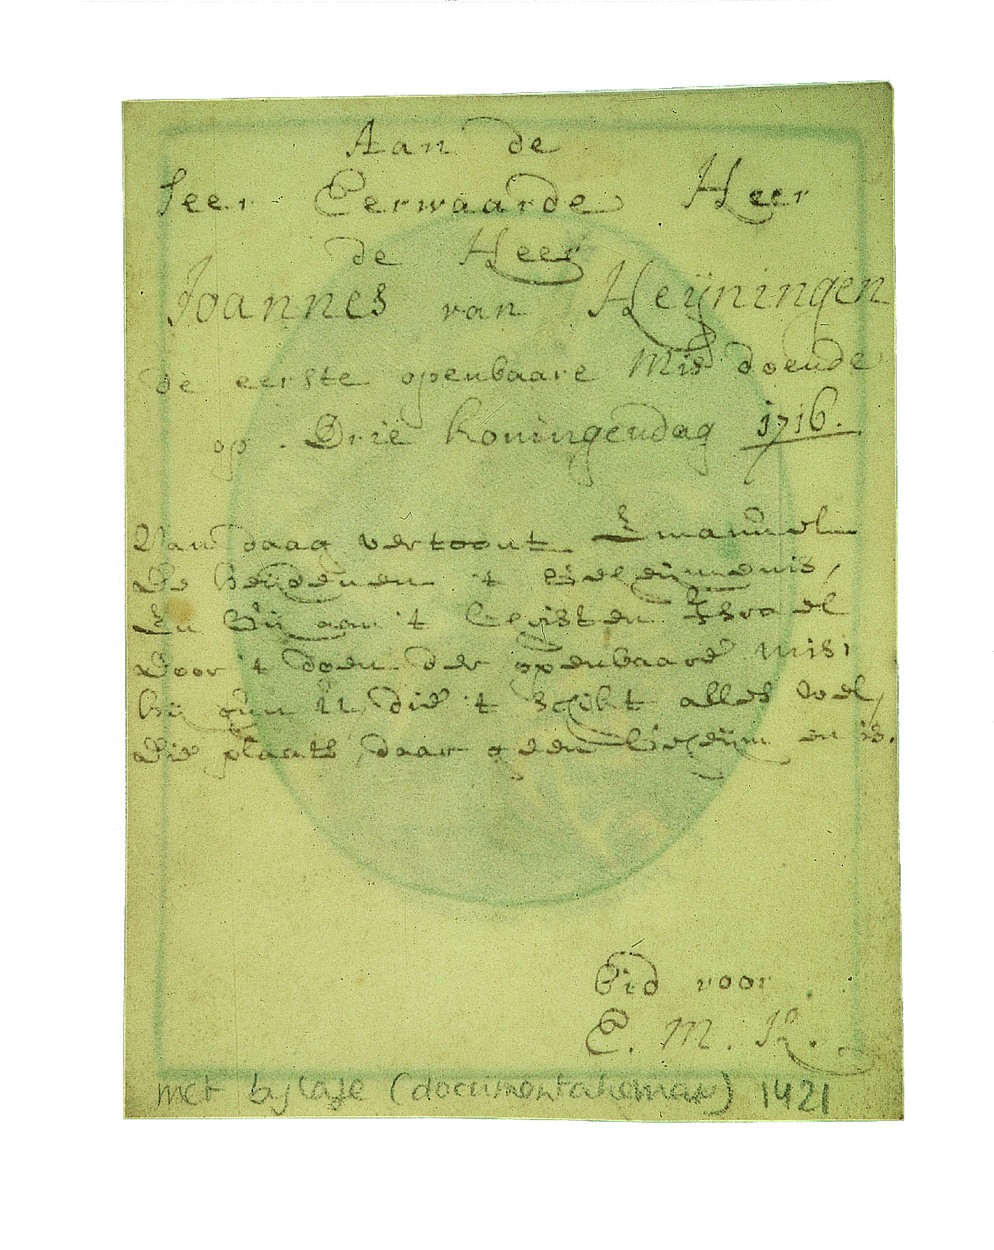 Aan de
seer Eerwaarde Heer
de Heer
Joannes van Heÿningen
de eerste openbaare Mis doende
op Drie koningendag 1716.
Van daag vertoont Emanuel
De heÿdenen 't
En bij aan 't Israel
Door 't doen der openbaare mis:
Bij die 't schikt alles wel,
Die plaats daar geen en is.
Bid voor
E. M. R.
met bylage (documentatiemap) 1421